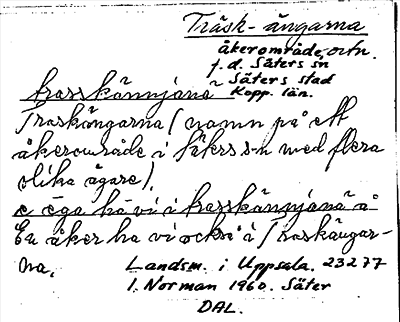 Träsk-ängarna
åkerområde, ortn.
f.d. Säters sn
Säters stad
Kopp. län.
trasskännjana
Traskängarna (namn på ett
åkerområde i Säters s-n med flera
olika ägare).
e ega hå vi i trasskännjana å
En åker ha vi också i Traskängar-
na.
Landsm. i Uppsala. 23277
I. Norman 1960. Säter
DAL.